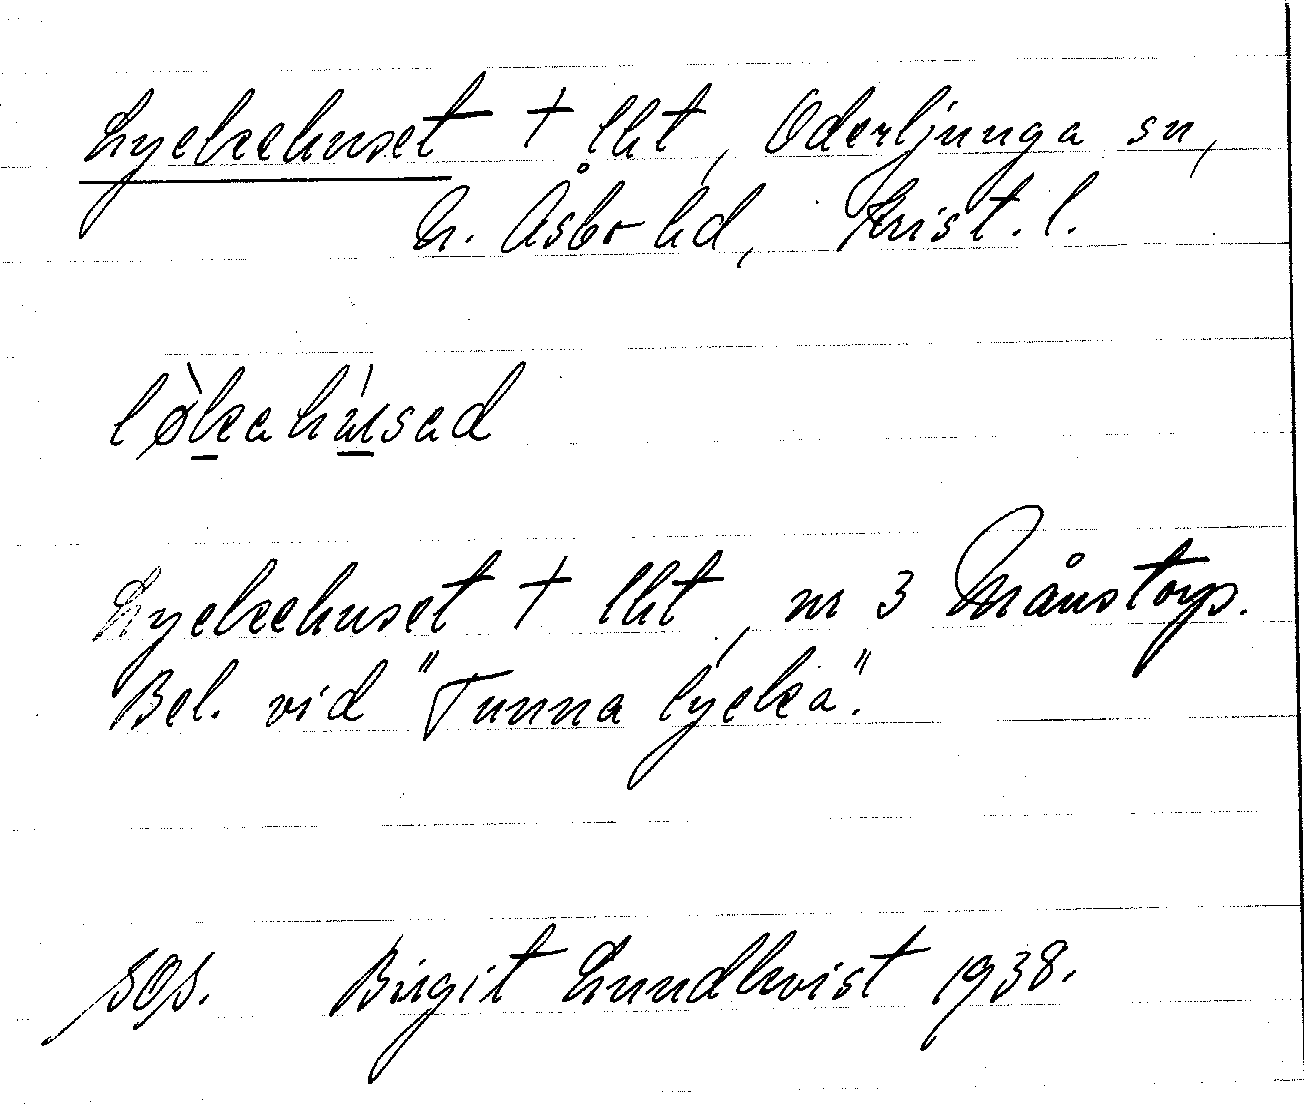 Lyckehuset † lht, Oderljunga sn,
N. Åsbo hd, Krist. l.
løkahusad
Lyckehuset † lht, nr 3 Månstorp.
Bel. vid "Tunna lycka".
SOS. Birgit Lundkvist 1938.